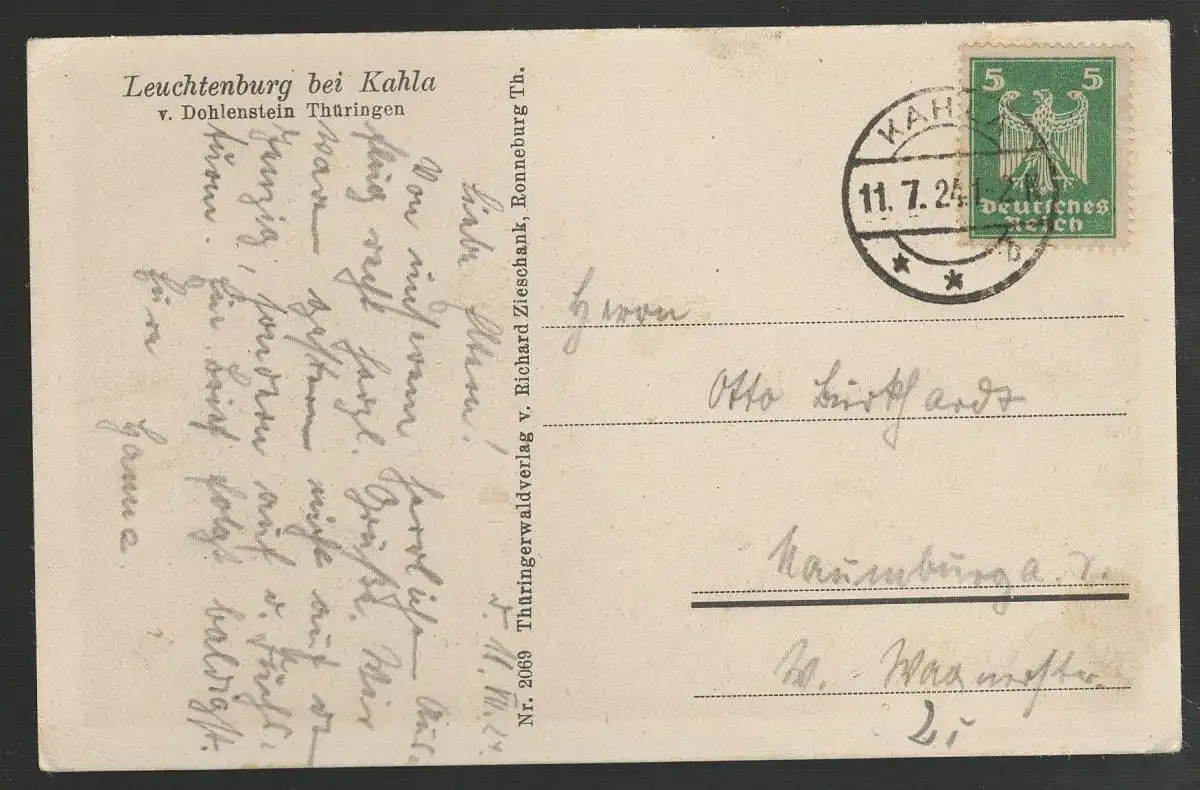 Leuchtenburg bei Kahla
v. Dohlenstein Thüringen
d. 11. VII. 24.
Liebe Eltern!
Von unserem herrlichen Aus-
flug recht herzl. Grüße. Wir
waren gestern nicht auf d.
sondern auf d.
türm. Ein Brief folgt baldigst.
Eure
Hanna
Nr. 2069 Thüringerwaldverlag v. Richard Zieschank, Ronneburg Th.
KAHLA
11. 7. 24. 1-2 N.
* * b
5 5
Deutsches
Reich
Herrn
Otto Burkhardt
Naumburg a. S.
W. Wagnerstr.
2.